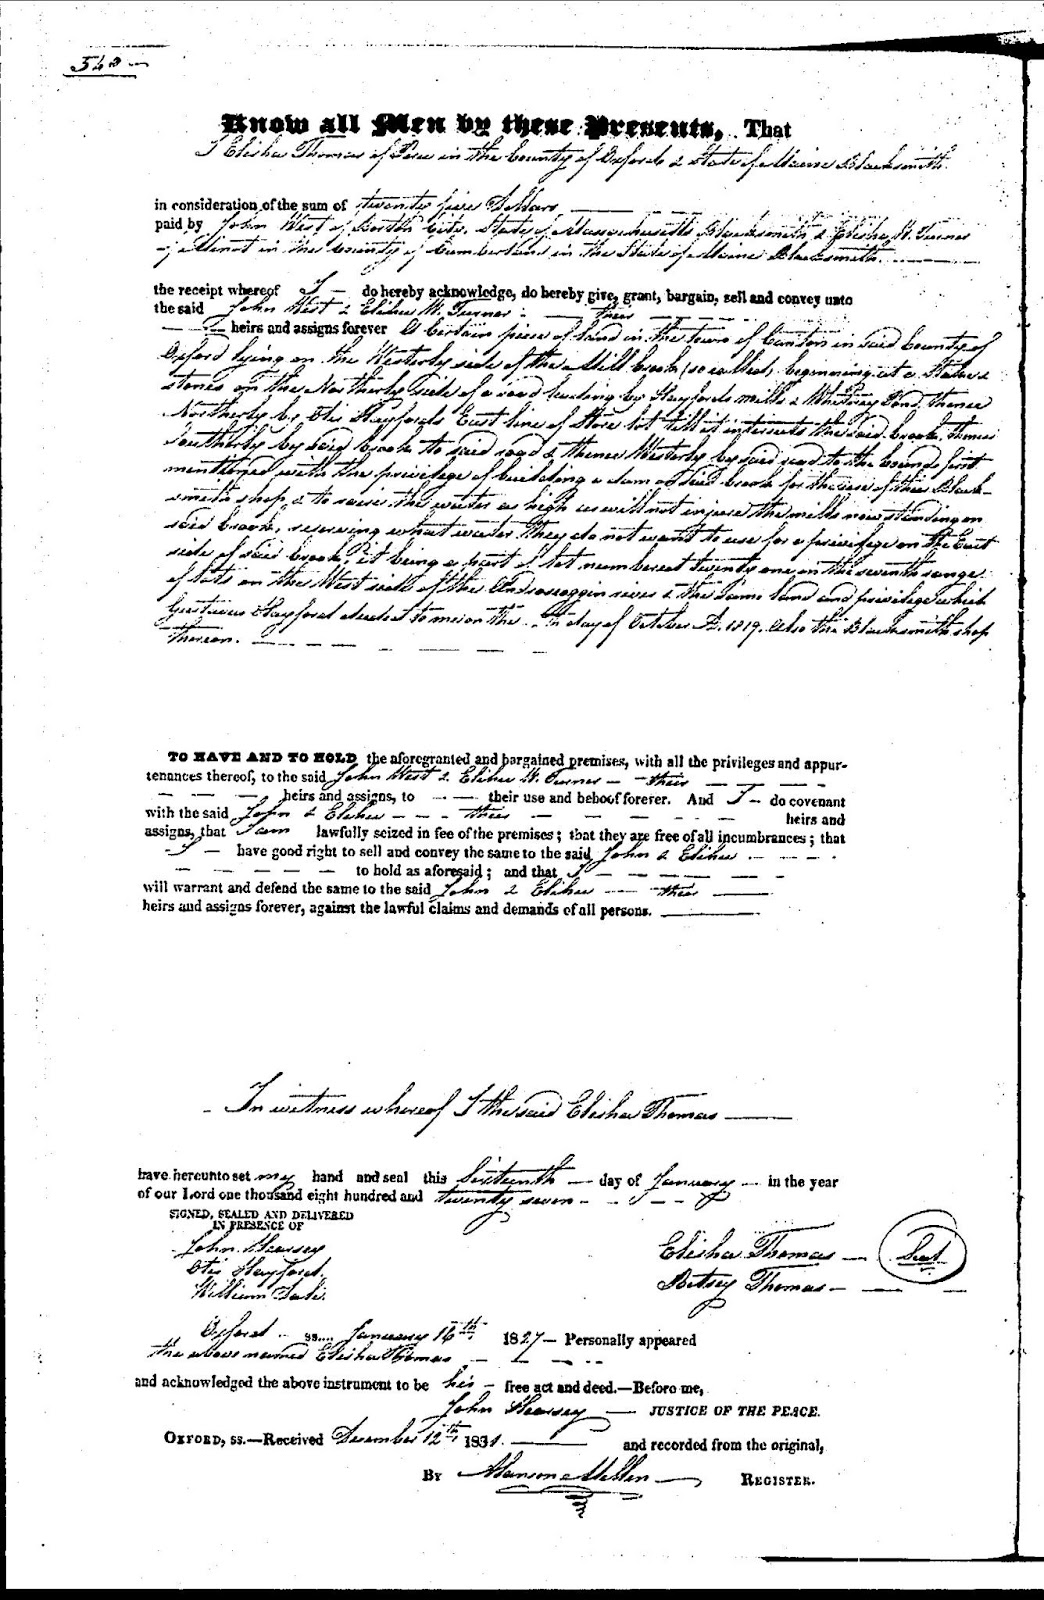 548
Know all Men by these Presents, That
I Elisha Thomas of Peru in the County of Oxford & State of Maine Blacksmith
in consideration of the sum of twenty five Dollars
paid by John West of Boston City, State of Massachusetts Blacksmith & Elisha W. Turner
of Minot in the County of Cumberland in the State of Maine Blacksmith
the receipt whereof I do hereby acknowledge, do hereby give, grant, bargain, sell and convey unto
the said John West & Elihu W. Turner their
heirs and assigns forever A Certain piece of land in the town of Canton in said County of
Oxford lying on the Westerly side of the Mill brook (so called) beginning at a Stake &
stones on the Northerly side of a road leading by Hayfords mills & Whitney Pond, thence
Northerly by Otis Hayfords East line of Store lot till it intersects the said brook, thence
Southerly by said brook to said road & thence Westerly by said road to the bounds first
mentioned with the privilege of building a dam on said brook for the use of their Black-
smith shop & to raise the water as high as will not injure the mills now standing on
said brook, reserving what water they do not want to use for a privilege on the East
side of said brook, it being a part of lot numbered twenty one in the seventh range
of lots on the West side of the Androscoggin river & the same land and privilege which
Gustavus Hayford deeded to me on the day of October A. 1819. also the Blacksmith shop
thereon.
TO HAVE AND TO HOLD the aforegranted and bargained premises, with all the privileges and appur-
tenances thereof, to the said John West & Elihu W. Turner their
heirs and assigns, to their use and behoof forever. And I do covenant
with the said John & Elihu their heirs and
assigns, that I am lawfully seized in fee of the premises; that they are free of all incumbrances; that
I have good right to sell and convey the same to the said John & Elihu
to hold as aforesaid; and that I
will warrant and defend the same to the said John & Elihu their
heirs and assigns forever, against the lawful claims and demands of all persons.
In witness whereof I the said Elisha Thomas
have hereunto set my hand and seal this Sixteenth day of January in the year
of our Lord one thousand eight hundred and twenty seven
SIGNED, SEALED AND DELIVERED
IN PRESENCE OF
John Hearsey
Otis Hayford
William
Elisha Thomas Seal
Betsey Thomas
Oxford ss.... January 16th 1827 Personally appeared
the above named Elisha Thomas
and acknowledged the above instrument to be his free act and deed.—Before me,
John Hearsey JUSTICE OF THE PEACE.
OXFORD, SS.—Received December 12th 1831. and recorded from the original,
BY Alanson Mellen REGISTER.